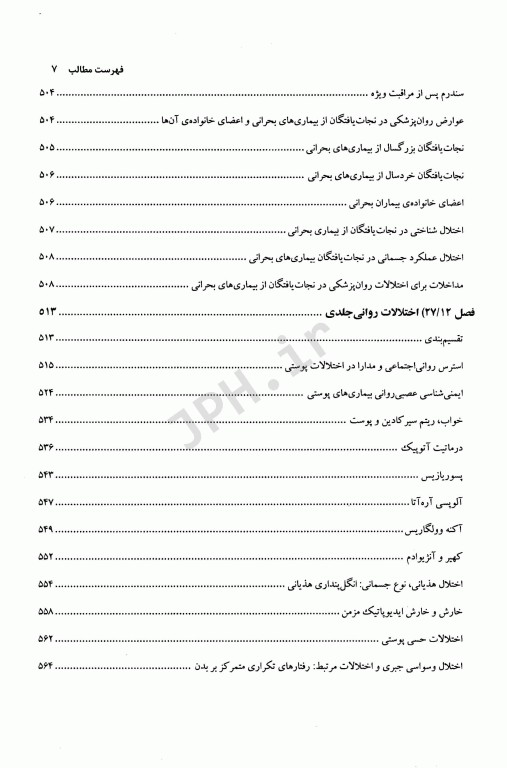 فهرست مطالب ۷
سندرم پس از مراقبت ویژه ........ ۵۰۴
عوارض روان‌پزشکی در نجات‌یافتگان از بیماری‌های بحرانی و اعضای خانواده‌ی آن‌ها ........ ۵۰۴
نجات‌یافتگان بزرگسال از بیماری‌های بحرانی ........ ۵۰۵
نجات‌یافتگان خردسال از بیماری‌های بحرانی ........ ۵۰۶
اعضای خانواده‌ی بیماران بحرانی ........ ۵۰۶
اختلال شناختی در نجات‌یافتگان از بیماری بحرانی ........ ۵۰۷
اختلال عملکرد جسمانی در نجات‌یافتگان بیماری‌های بحرانی ........ ۵۰۸
مداخلات برای اختلالات روان‌پزشکی در نجات‌یافتگان از بیماری‌های بحرانی ........ ۵۰۸
فصل ۲۷/۱۲) اختلالات روانی‌جلدی ........ ۵۱۳
تقسیم‌بندی ........ ۵۱۳
استرس روانی‌اجتماعی و مدارا در اختلالات پوستی ........ ۵۱۵
ایمنی‌شناسی عصبی‌روانی بیماری‌های پوستی ........ ۵۲۴
خواب، ریتم سیرکادین و پوست ........ ۵۳۴
درماتیت آتوپیک ........ ۵۳۶
پسوریازیس ........ ۵۴۳
آلوپسی آره‌آتا ........ ۵۴۷
آکنه وولگاریس ........ ۵۴۹
کهیر و آنژیوادم ........ ۵۵۲
اختلال هذیانی، نوع جسمانی: انگل‌پنداری هذیانی ........ ۵۵۴
خارش و خارش ایدیوپاتیک مزمن ........ ۵۵۸
اختلالات حسی پوستی ........ ۵۶۲
اختلال وسواسی جبری و اختلالات مرتبط: رفتارهای تکراری متمرکز بر بدن ........ ۵۶۴
JPH.ir